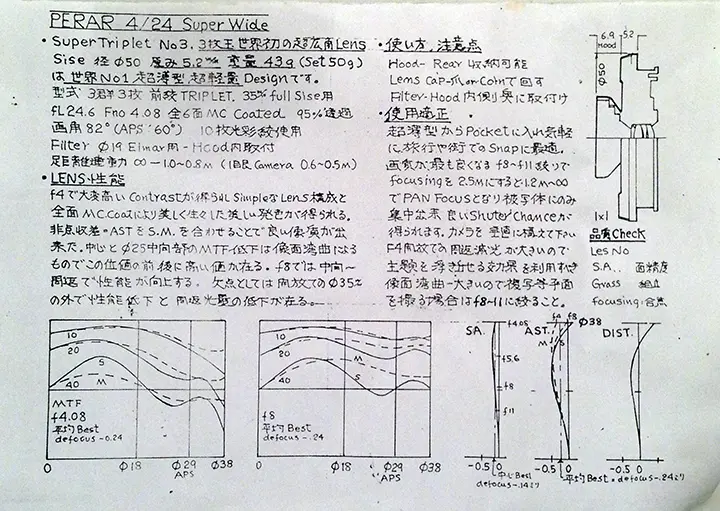 PERAR 4/24 Super Wide
• SuperTriplet No3. 3枚玉世界初の超広角Lens
Sise 径Φ50 厚み5.2㎜ 重量43g (Set50g)
は世界No1 超薄型 超軽量 Designです。
型式 3群3枚 前絞TRIPLET. 35㎜full Sise用
fL24.6 Fno 4.08 全6面MC Coated 95%透過
画角82°(APS 60°) 10枚光彩絞使用
Filter Φ19 Elmar用-Hood内取付
距離連動 ∞-1.0~0.8M (1眼Camera 0.6~0.5M)
• LENS性能
f4で大変高いContrastが得られSimpleなLens構成と
全面M.C.Coatにより美しく生々した
発色が得られる。
非点収差のASTをS.M.を合わせることで良い
出
来た。中心とΦ25中向部のMTF低下は像面湾曲による
ものでこの位置の前後に高い値が在る。f8では中向~
周辺で性能が向上する。欠点としては開放でのΦ35㎜
の外で性能低下と周辺光量の低下が在る。
• 使い方,注意点
Hood- Rear 収納可能
Lens Cap-爪orCoinで回す
Filter-Hood内側奥に取付け
• 使用適正
超薄型からPocketに入れ気軽
に旅行や街でのSnapに最適。
画気が最も良くなるf8~f11絞りで
focusingを2.5Mにすると1.2M~∞
でPAN Focusとなり被写体にのみ
集中出来良いShuterChanceが
得られます。カメラを
に構えて下さい
F4開放での周辺減光が大きいので
主題を浮き出せる効果を利用すべき
像面湾曲-大きいので複写等平面
を撮る場合はf8~11に絞ること。
6.9 5.2
Hood
Φ50
1x1
品質Check
Les No
S.A.. 面精度
Grass 組立
focusing:合点
10
20
40
S
M
MTF
f4.08
平均Best
defocus-0.24
0 Φ18 Φ29 Φ38
APS
10
20
40
M
S
f8
平均Best
defocus-.24
0 Φ18 Φ29 Φ38
APS
SA.
f4.08
f5.6
f8
f11
-0.5 0
中心Best
defocus-.14より
AST.
f4 f8
Φ38
M S
-0.5 0
平均Best。defocus-.24より
DIST.
-0.5 0